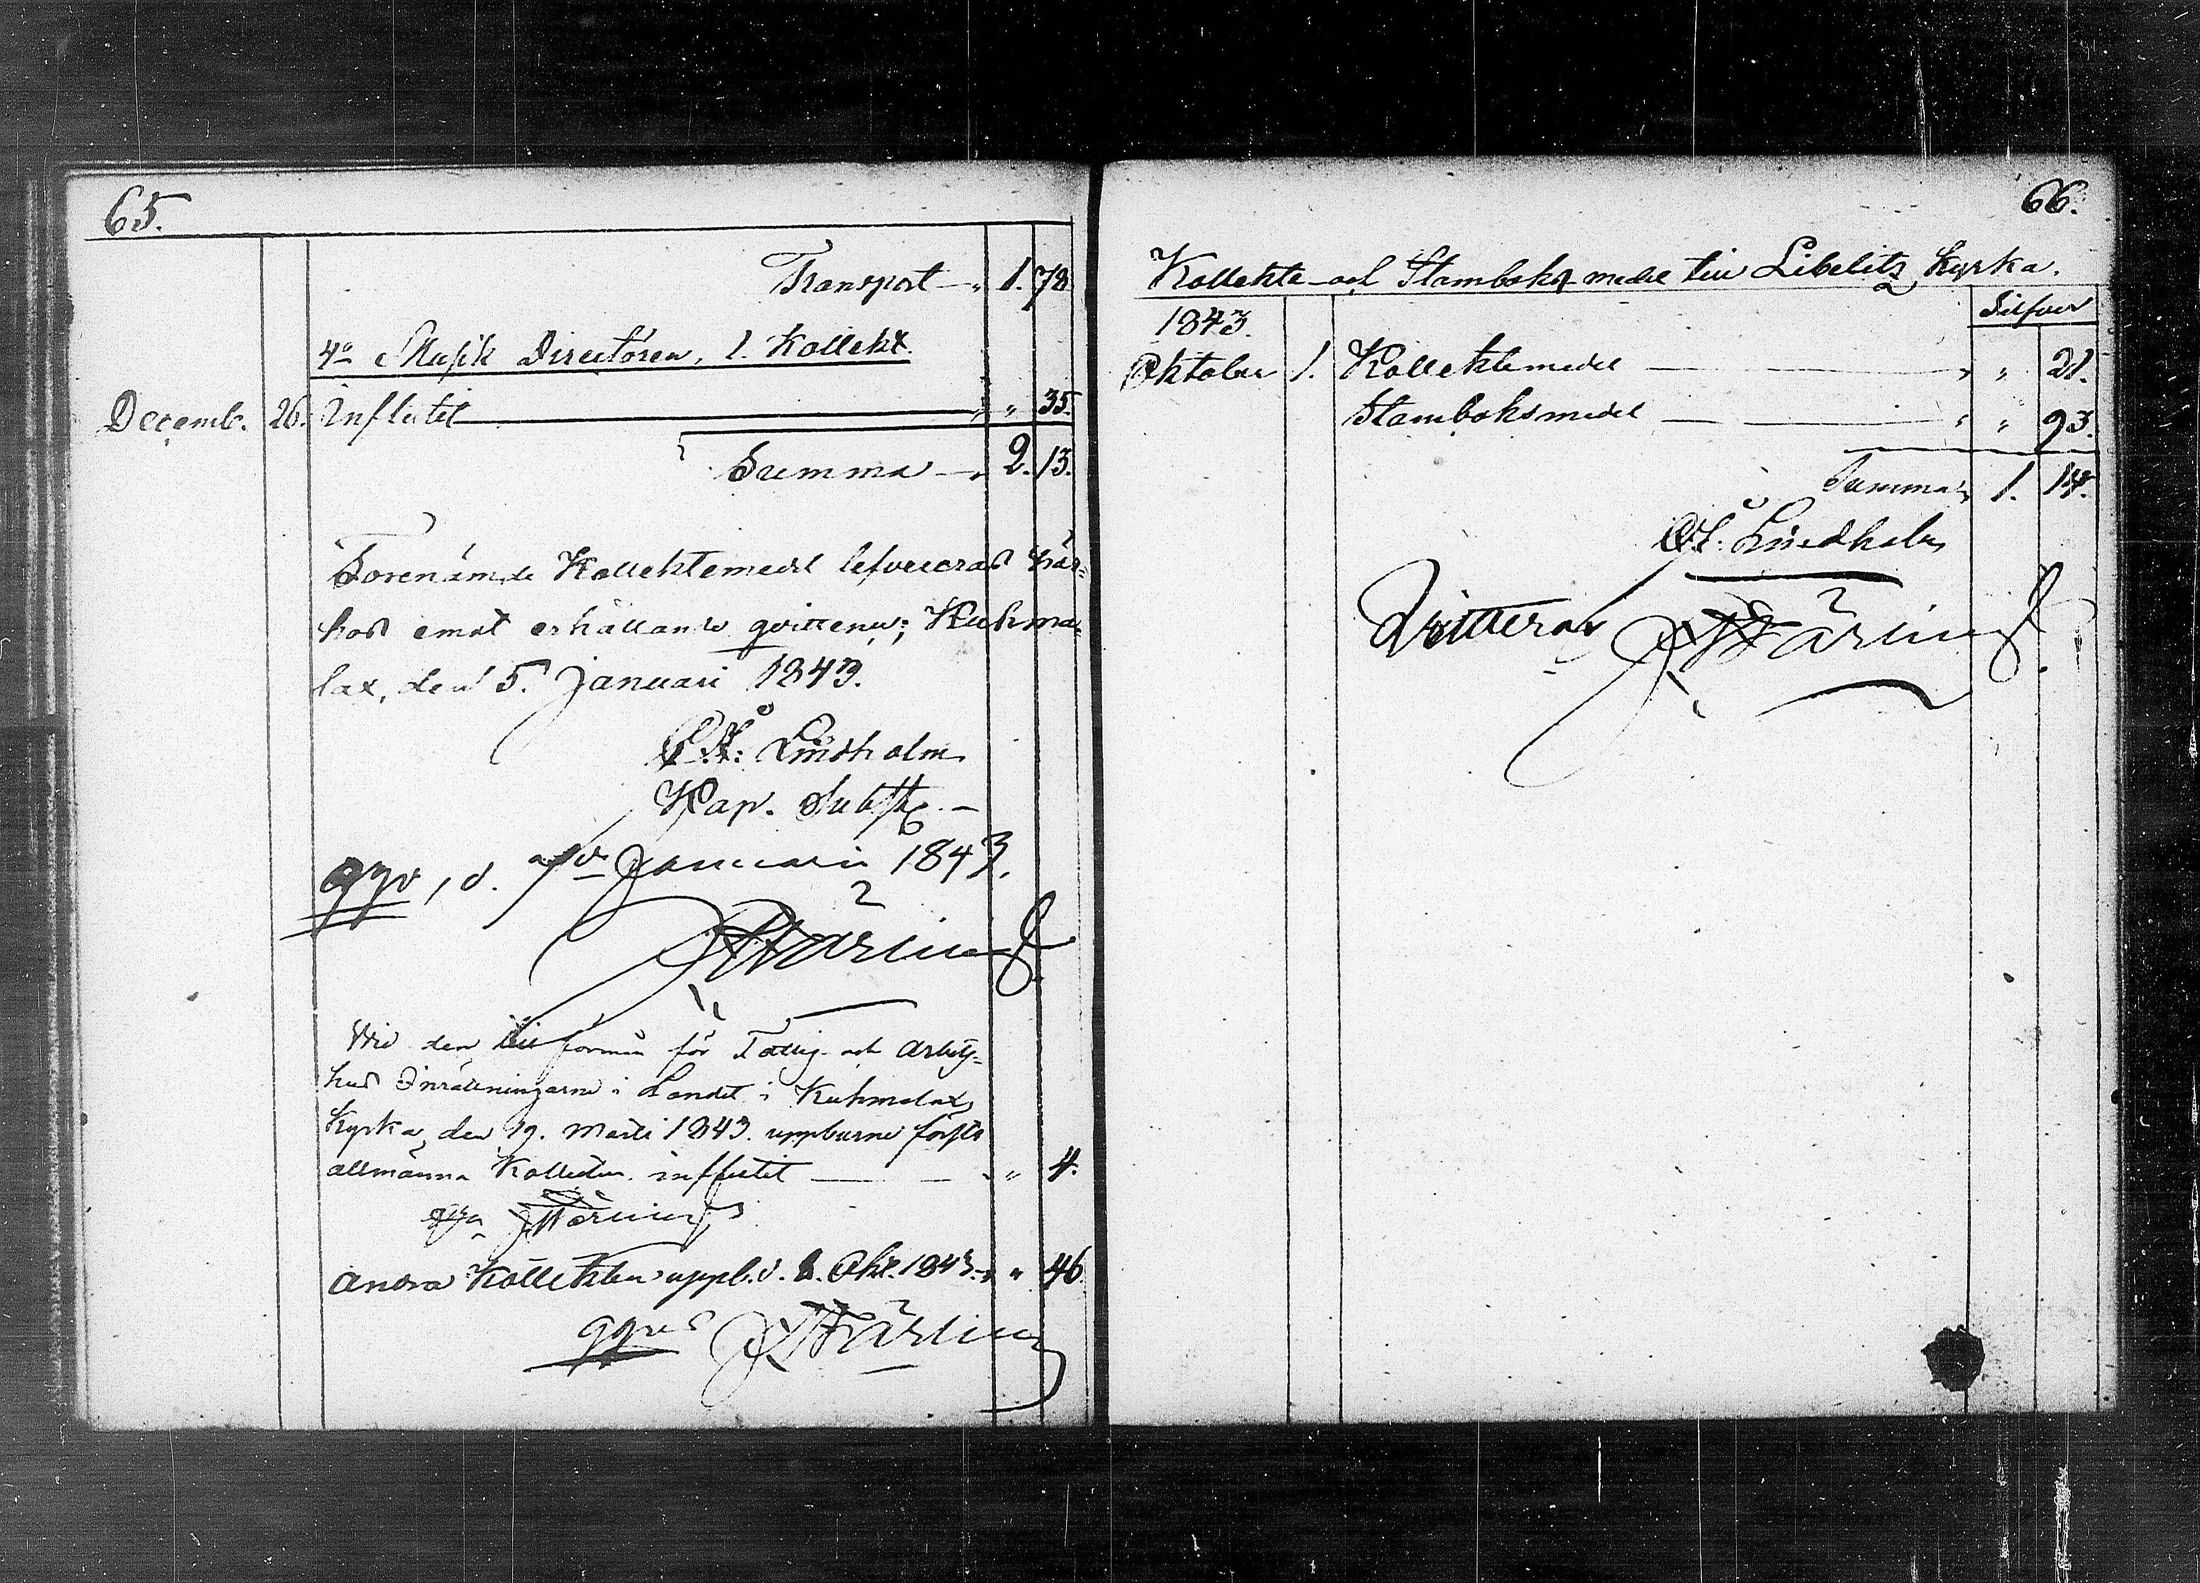 65.
Transport — " 1. 78
4o Musik Directören, 1. Kollekt.
Decemb. 26. Influtit " " 35.
Summa — " 2. 13.
Förenämnde Kollektemedel lefvererad här-
hos emot erhållande qvittence; Kuhma-
lax, den 5. Januari 1843.
Lindholm
Kap. Subst.
d. Januarii 1843.
Wid den till förmån för Fattig- och Arbets-
hus Inrättningarne i Landet i Kuhmalax
Kyrka den 19. Martii 1843. uppburne första
allmänna Kollecten influtit — — " " 4.
Andra Kollekten uppb. d. 8. Okt. 1843. — " " 46.
66.
Kollekte- och Stamboks medel till Libelitz Kyrka.
1843. Silfver
Oktober 1. Kollektemedel — — " " 21.
Stamboksmedel — — " " 93.
Summa " 1. 14.
Lindholm
Qvitteras